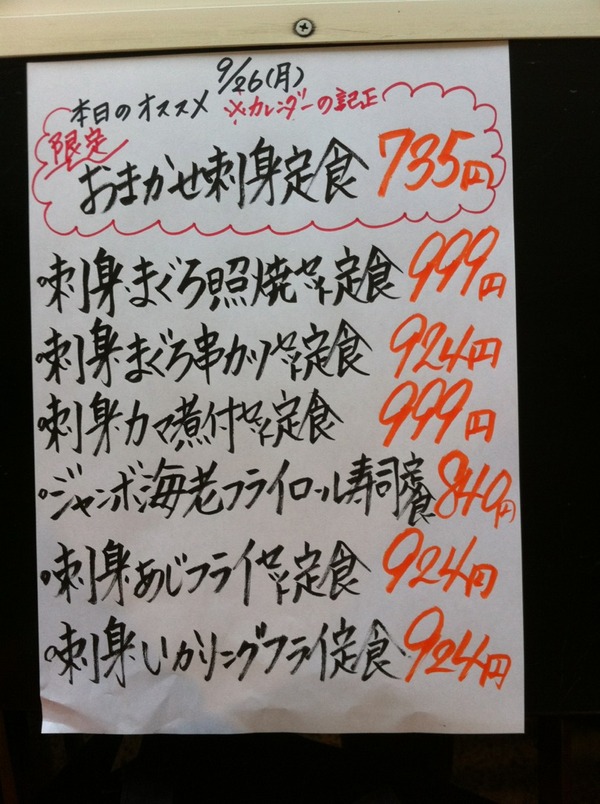 9/26(月)
本日のオススメ ※カレンダーの記正
限定
おまかせ刺身定食 735円
・刺身まぐろ照焼セット定食 999円
・刺身まぐろ串カツセット定食 924円
・刺身カマ煮付セット定食 999円
・ジャンボ海老フライロール寿司定食 840円
・刺身あじフライセット定食 924円
・刺身いかリングフライ定食 924円